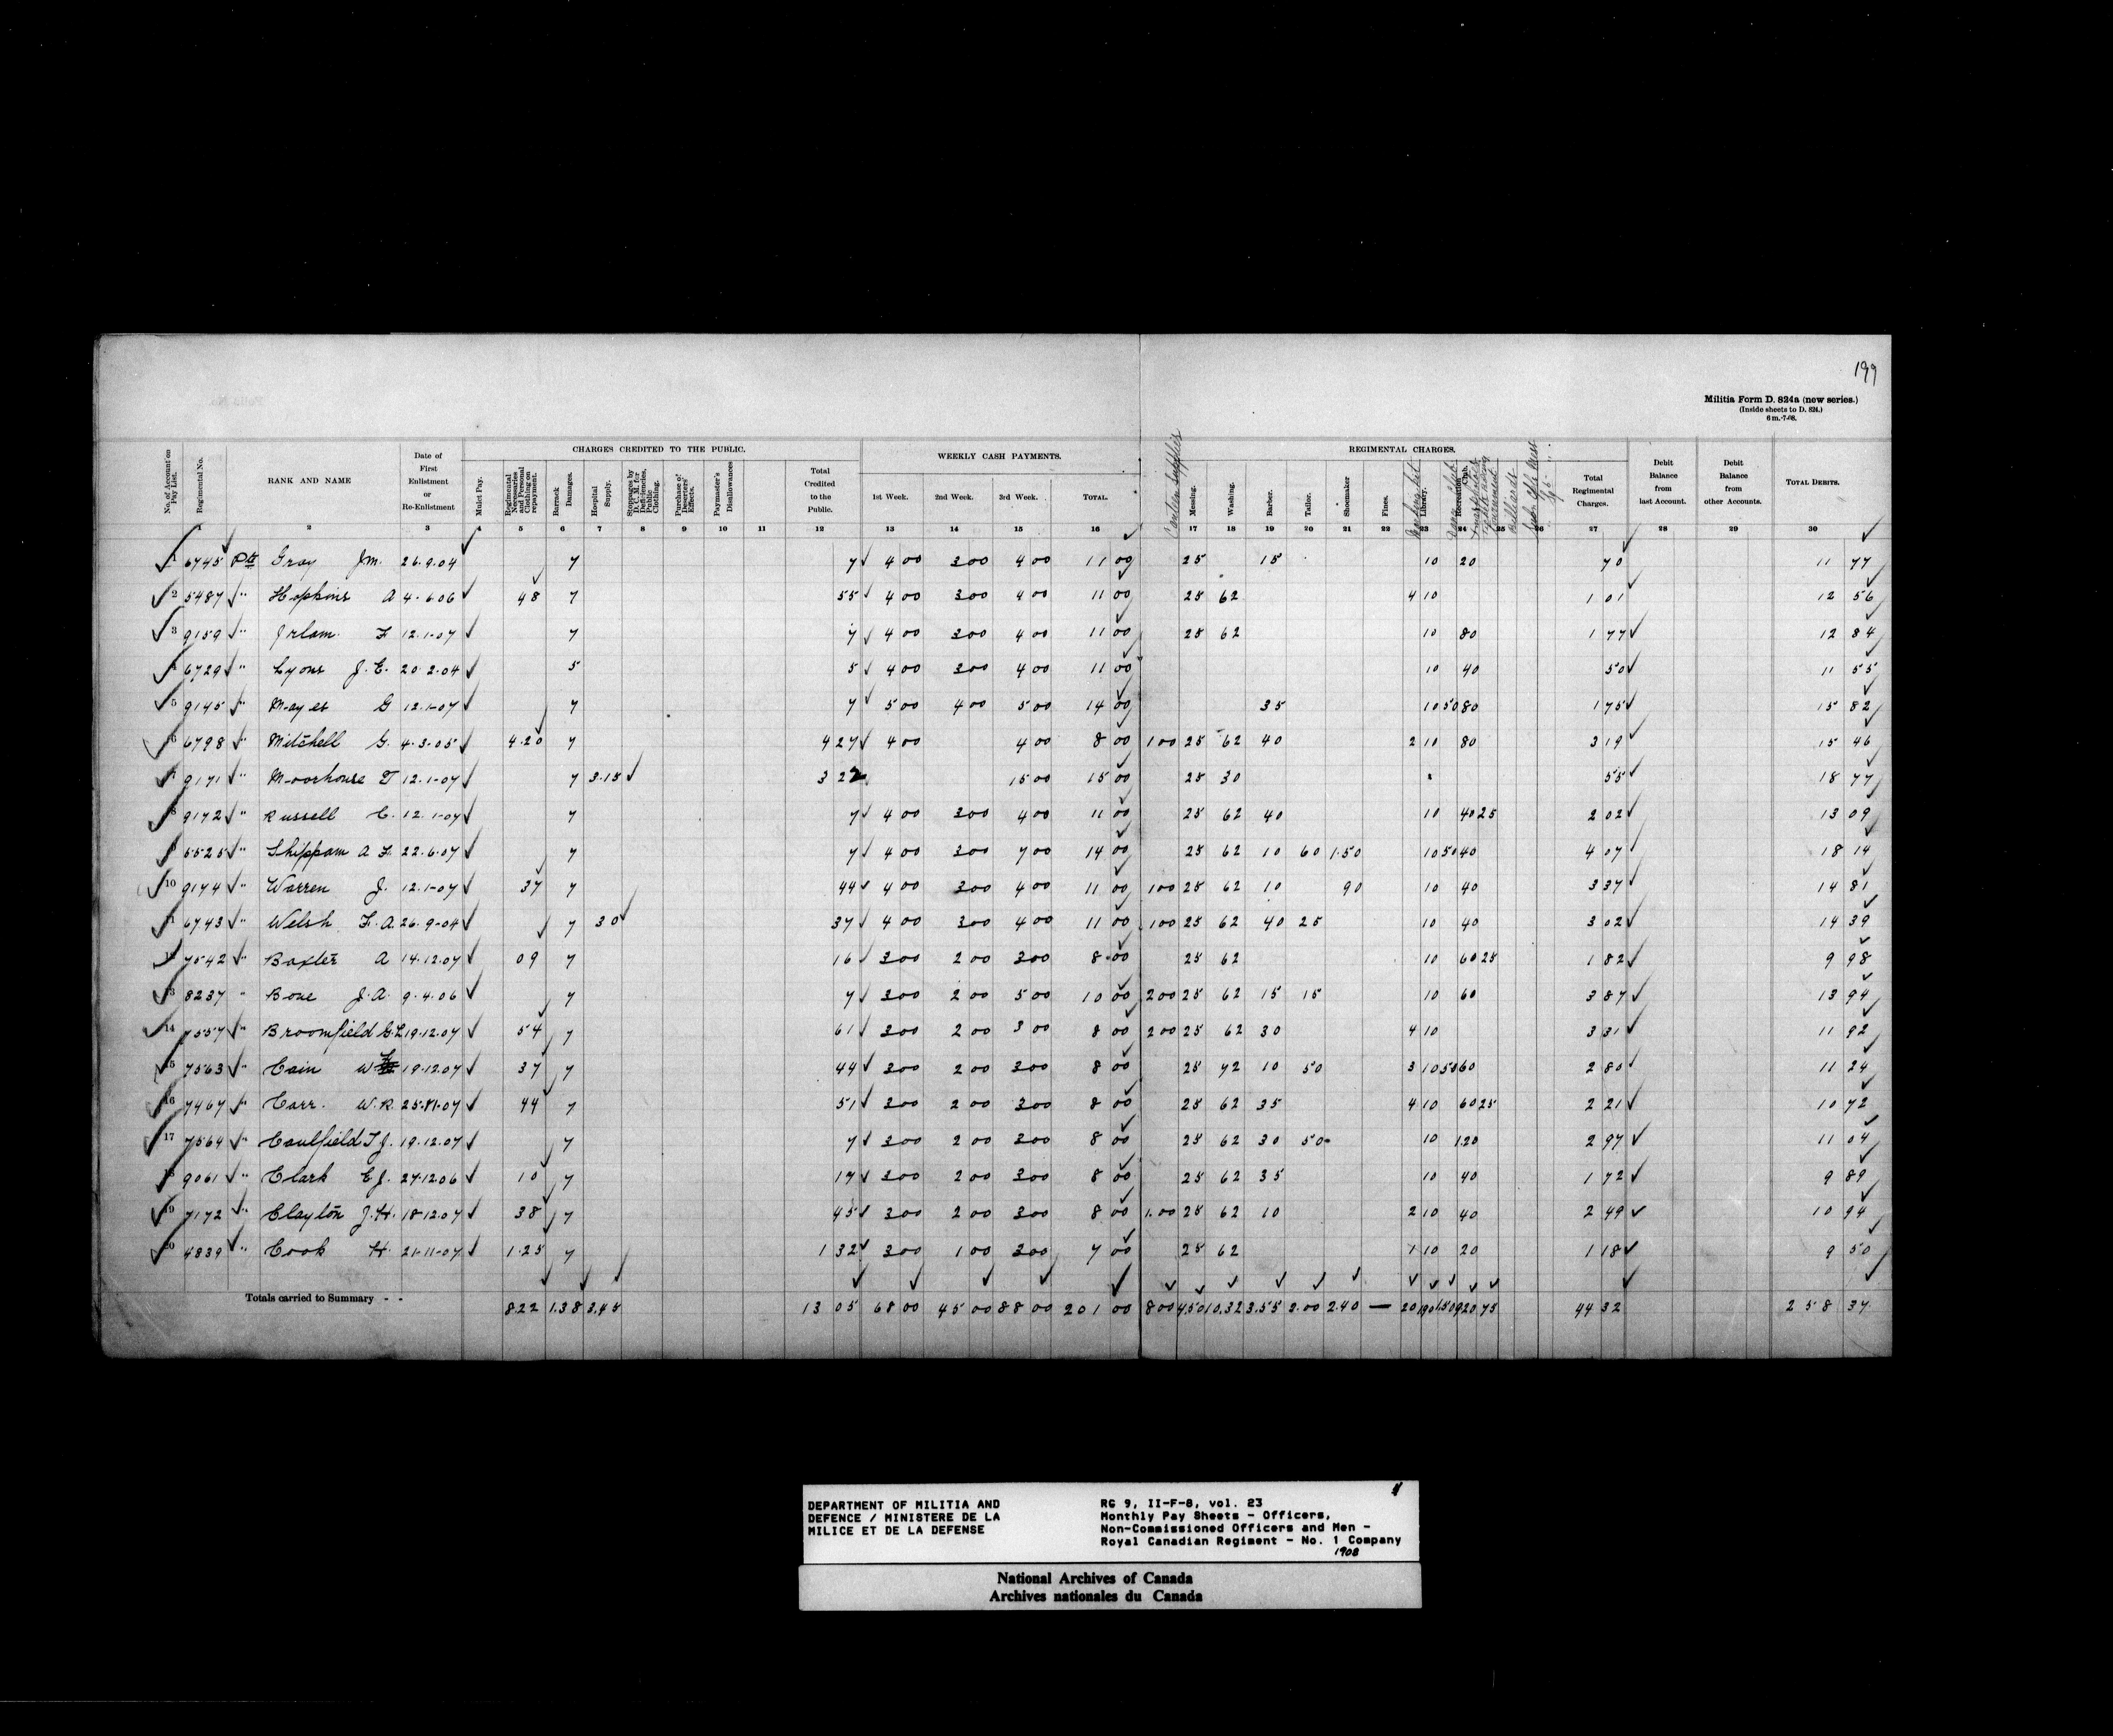 199
Militia Form D. 824a (new series.)
(Inside sheets to D. 824.)
6 m.-7-08.
CHARGES CREDITED TO THE PUBLIC. WEEKLY CASH PAYMENTS. REGIMENTAL CHARGES.
No. of Account on Pay List. Regimental No. RANK AND NAME Date of First Enlistment or Re-Enlistment Mulct Pay. Regimental Necessaries and Personal Clothing on repayment. Barrack Damages. Hospital Supply. Stoppages by D. C. M. for Deficiencies, Public Clothing. Purchase of Deserters' Effects. Paymaster's Disallowances Total Credited to the Public. 1st Week. 2nd Week. 3rd Week. TOTAL. Canteen Supplies Messing. Washing. Barber. Tailor. Shoemaker Fines. Library. Recreation Club. Billiards Total Regimental Charges. Debit Balance from last Account. Debit Balance from other Accounts. TOTAL DEBITS.
1 2 3 4 5 6 7 8 9 10 11 12 13 14 15 16 17 18 19 20 21 22 23 24 25 26 27 28 29 30
1 6745 Pte Gray J.M. 26.9.04 7 7 4 00 3 00 4 00 11 00 25 15 10 20 70 11 77
2 5487 " Hopkins A 4.6.06 48 7 55 4 00 3 00 4 00 11 00 25 62 4 10 1 01 12 56
3 9159 " Irlam F 12.1.07 7 7 4 00 3 00 4 00 11 00 25 62 10 80 1 77 12 84
4 6729 " Lyons J.E. 20.2.04 5 5 4 00 3 00 4 00 11 00 10 40 50 11 55
5 9145 " Mayes G 12.1.07 7 7 5 00 4 00 5 00 14 00 35 10 50 80 1 75 15 82
6 6798 " Mitchell G. 4.3.05 4.20 7 4 27 4 00 4 00 8 00 1 00 25 62 40 2 10 80 3 19 15 46
7 9171 " Moorhouse T 12.1.07 7 3.15 3 22 15 00 15 00 25 30 55 18 77
8 9172 " Russell C. 12.1.07 7 7 4 00 3 00 4 00 11 00 25 62 40 10 40 25 2 02 13 09
9 5525 " Shippam A F. 22.6.07 7 7 4 00 3 00 7 00 14 00 25 62 10 60 1.50 10 50 40 4 07 18 14
10 9174 " Warren J. 12.1.07 37 7 44 4 00 3 00 4 00 11 00 1 00 25 62 10 90 10 40 3 37 14 81
11 6743 " Welsh F.A. 26.9.04 7 30 37 4 00 3 00 4 00 11 00 1 00 25 62 40 25 10 40 3 02 14 39
12 7542 " Baxter A 14.12.07 09 7 16 3 00 2 00 3 00 8 00 25 62 10 60 25 1 82 9 98
13 8237 " Bone J.A. 9.4.06 7 7 3 00 2 00 5 00 10 00 2 00 25 62 15 15 10 60 3 87 13 94
14 7557 " Broomfield G.L 19.12.07 54 7 61 3 00 2 00 3 00 8 00 2 00 25 62 30 4 10 3 31 11 92
15 7563 " Cain W 19.12.07 37 7 44 3 00 2 00 3 00 8 00 25 72 10 50 3 10 50 60 2 80 11 24
16 7467 " Carr. W.R. 25.11.07 44 7 51 3 00 2 00 3 00 8 00 25 62 35 4 10 60 25 2 21 10 72
17 7564 " Caulfield T J. 19.12.07 7 7 3 00 2 00 3 00 8 00 25 62 30 50 10 1.20 2 97 11 04
18 9061 " Clark E J. 27.12.06 10 7 17 3 00 2 00 3 00 8 00 25 62 35 10 40 1 72 9 89
19 7172 " Clayton J.H. 18.12.07 38 7 45 3 00 2 00 3 00 8 00 1.00 25 62 10 2 10 40 2 49 10 94
20 4839 " Cook H. 21.11.07 1.25 7 1 32 3 00 1 00 3 00 7 00 25 62 1 10 20 1 18 9 50
Totals carried to Summary - - 8.22 1.38 3.45 13 05 68 00 45 00 88 00 201 00 8 00 4.50 10.32 3.55 2.00 2.40 — 20 1 90 1.50 9 20 75 44 32 258 37
DEPARTMENT OF MILITIA AND DEFENCE / MINISTERE DE LA MILICE ET DE LA DEFENSE
RG 9, II-F-8, vol. 23
Monthly Pay Sheets - Officers,
Non-Commissioned Officers and Men -
Royal Canadian Regiment - No. 1 Company
1908
National Archives of Canada
Archives nationales du Canada